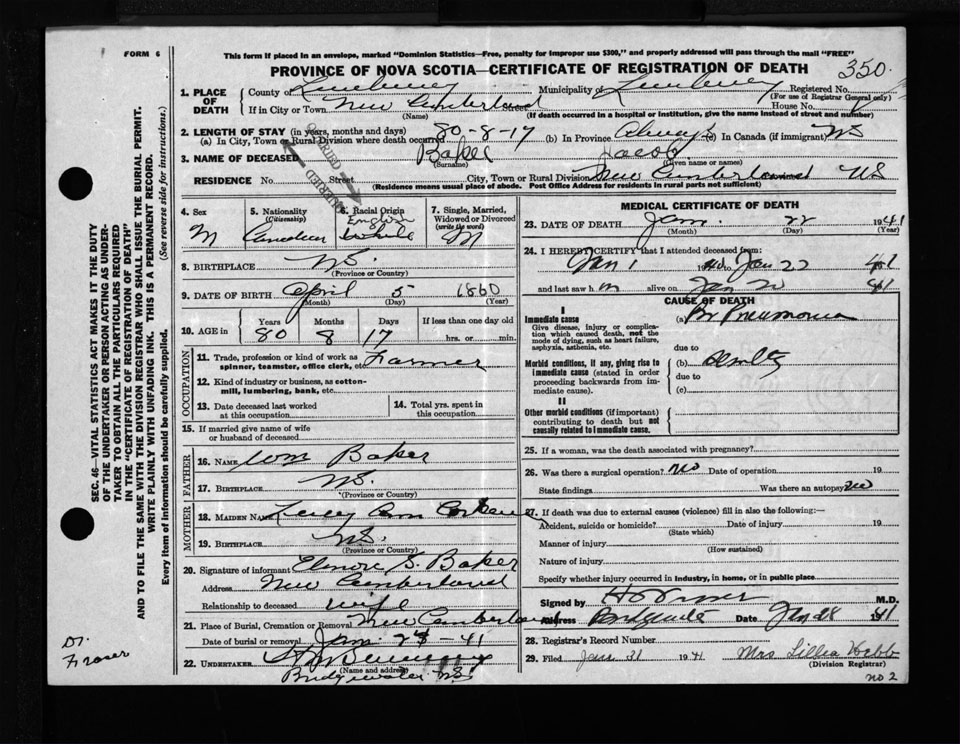 FORM 6
This form if placed in an envelope, marked "Dominion Statistics—Free, penalty for improper use $300," and properly addressed will pass through the mail "FREE"
PROVINCE OF NOVA SCOTIA—CERTIFICATE OF REGISTRATION OF DEATH 350
1. PLACE OF DEATH
County of Lunenburg Municipality of Lunenburg Registered No.
(For use of Registrar General only)
If in City or Town New Cumberland Street House No.
(Name) (If death occurred in a hospital or institution, give the name instead of street and number)
2. LENGTH OF STAY (in years, months and days)
(a) In City, Town or Rural Division where death occurred 80-8-17 (b) In Province Always (c) In Canada (if immigrant) NS
3. NAME OF DECEASED Baker Jacob
(Surname) (Given name or names)
RESIDENCE No. Street City, Town or Rural Division New Cumberland NS
(Residence means usual place of abode. Post Office Address for residents in rural parts not sufficient)
4. Sex M
5. Nationality (Citizenship) Canadian
6. Racial Origin English white
7. Single, Married, Widowed or Divorced (write the word) M
8. BIRTHPLACE N.S.
(Province or Country)
9. DATE OF BIRTH April 5 1860
(Month) (Day) (Year)
10. AGE in Years Months Days If less than one day old
80 8 17 hrs. or min.
OCCUPATION
11. Trade, profession or kind of work as spinner, teamster, office clerk, etc. Farmer
12. Kind of industry or business, as cotton-mill, lumbering, bank, etc.
13. Date deceased last worked at this occupation
14. Total yrs. spent in this occupation
15. If married give name of wife or husband of deceased
FATHER
16. NAME Wm Baker
17. BIRTHPLACE N.S.
(Province or Country)
MOTHER
18. MAIDEN NAME Ann
19. BIRTHPLACE N.S.
(Province or Country)
20. Signature of informant S. Baker
Address New Cumberland
Relationship to deceased wife
21. Place of Burial, Cremation or Removal New Cumberland
Date of burial or removal Jan. -41
22. UNDERTAKER
(Name and address)
Bridgewater NS
MEDICAL CERTIFICATE OF DEATH
23. DATE OF DEATH Jan. 22 1941
(Month) (Day) (Year)
24. I HEREBY CERTIFY that I attended deceased from:
Jan 1 to Jan 22 41
and last saw h m alive on Jan 20 41
CAUSE OF DEATH
I
Immediate cause
Give disease, injury or complication which caused death, not the mode of dying, such as heart failure, asphyxia, asthenia, etc.
(a) Br Pneumonia
due to
Morbid conditions, if any, giving rise to immediate cause (stated in order proceeding backwards from immediate cause)
(b) Senility
due to
(c)
II
Other morbid conditions (if important) contributing to death but not causally related to immediate cause.
25. If a woman, was the death associated with pregnancy?
26. Was there a surgical operation? No Date of operation 19
State findings Was there an autopsy No
27. If death was due to external causes (violence) fill in also the following:—
Accident, suicide or homicide? Date of injury 19
(State which)
Manner of injury
(How sustained)
Nature of injury
Specify whether injury occurred in industry, in home, or in public place
Signed by M.D.
Address Date Jan 28 1941
28. Registrar's Record Number
29. Filed Jan 31 1941 Mrs Lillia Webb
(Division Registrar)
no 2
SEC. 46—VITAL STATISTICS ACT MAKES IT THE DUTY
OF THE UNDERTAKER OR PERSON ACTING AS UNDER-
TAKER TO OBTAIN ALL THE PARTICULARS REQUIRED
IN THE "CERTIFICATE OF REGISTRATION OF DEATH"
AND TO FILE THE SAME WITH THE DIVISION REGISTRAR WHO SHALL ISSUE THE BURIAL PERMIT.
WRITE PLAINLY WITH UNFADING INK. THIS IS A PERMANENT RECORD.
Every item of information should be carefully supplied. (See reverse side for instructions.)
Dr. Fraser